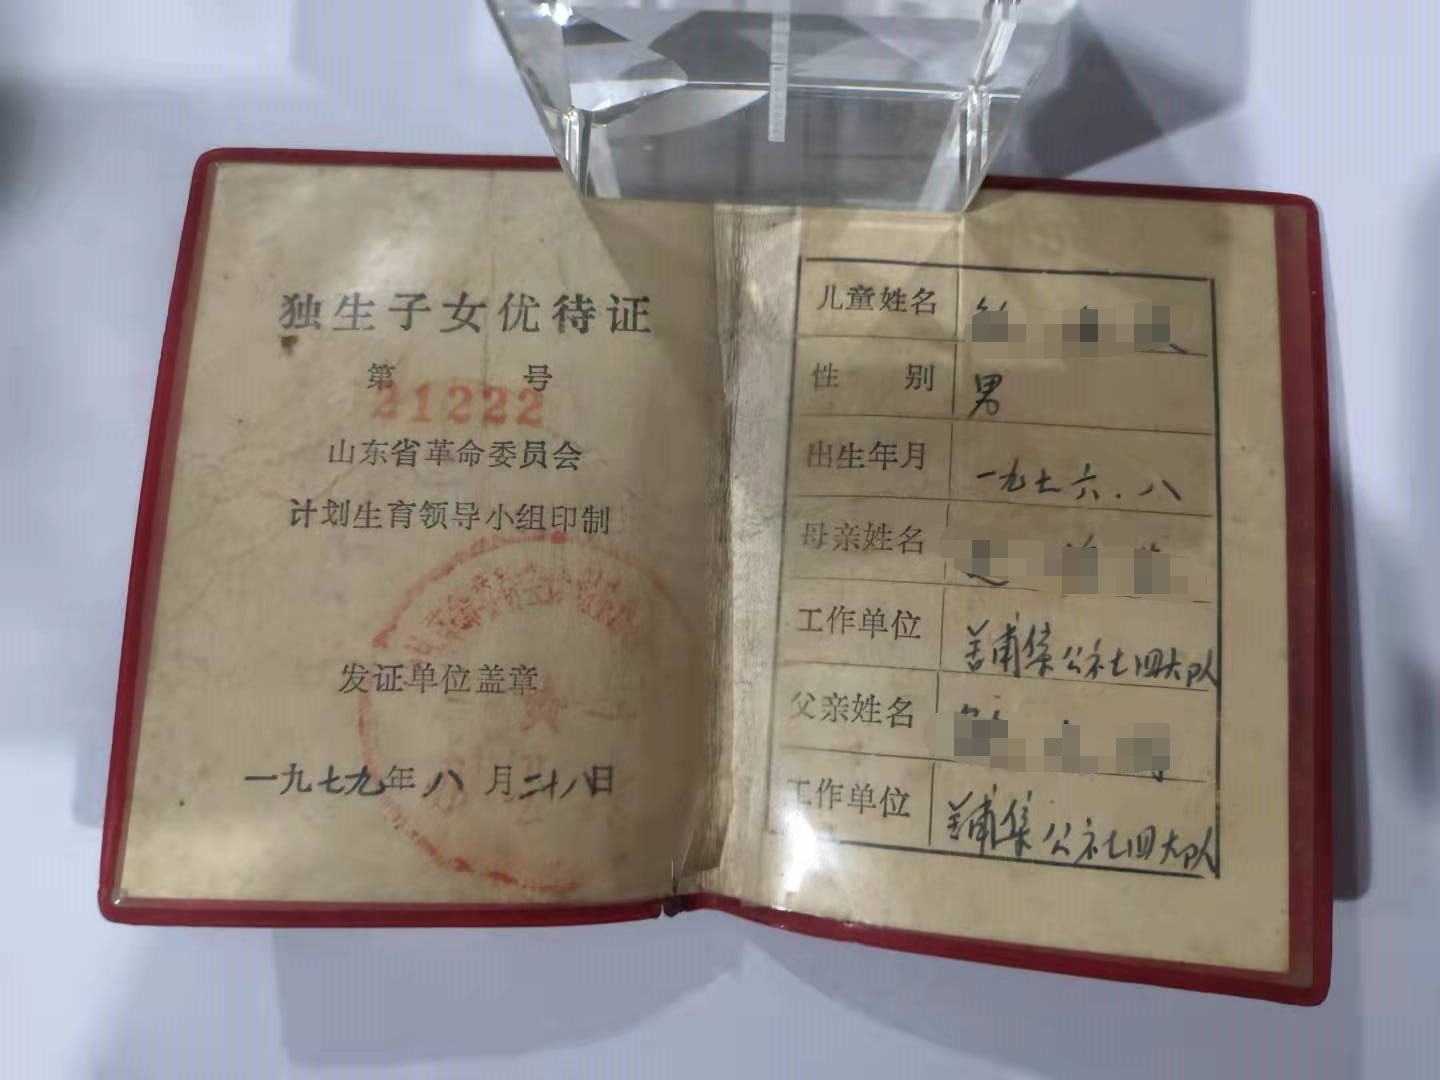 独生子女优待证
第 号
21222
山东省革命委员会
计划生育领导小组印制
发证单位盖章
一九七九年八月二十八日
儿童姓名
性 别 男
出生年月 一九七六.八
母亲姓名
工作单位 甫集公社四大队
父亲姓名
工作单位 甫集公社四大队